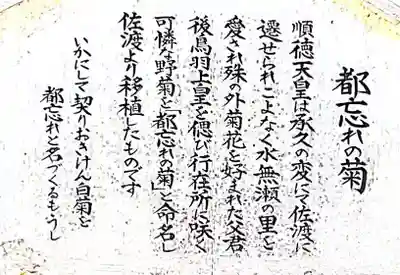 都忘れの菊
順徳天皇は承久の変にて佐渡に
遷せられこよなく水無瀬の里を
愛され殊の外菊花を好まれた父君
後鳥羽上皇を偲び行在所に咲く
可憐な野菊を「都忘れの菊」と命名し
佐渡より移植したものです
いかにして契りおきけん白菊を
都忘れと名づくるもうし